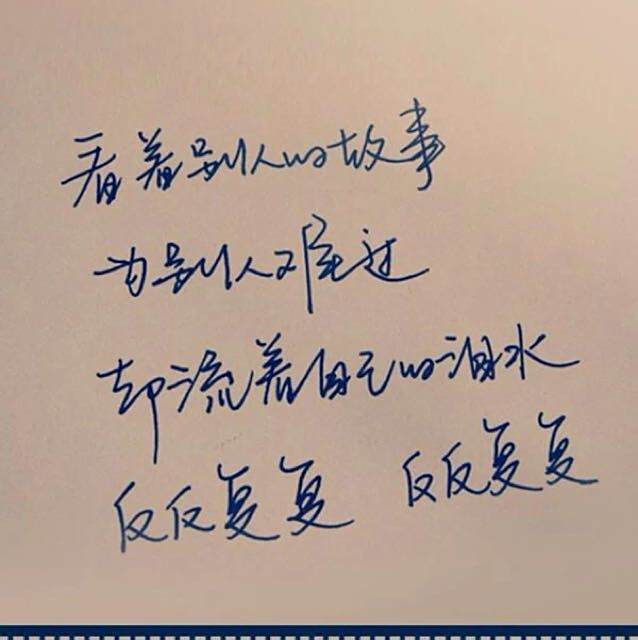 看着别人的故事
为别人难过
却流着自己的泪水
反反复复 反反复复